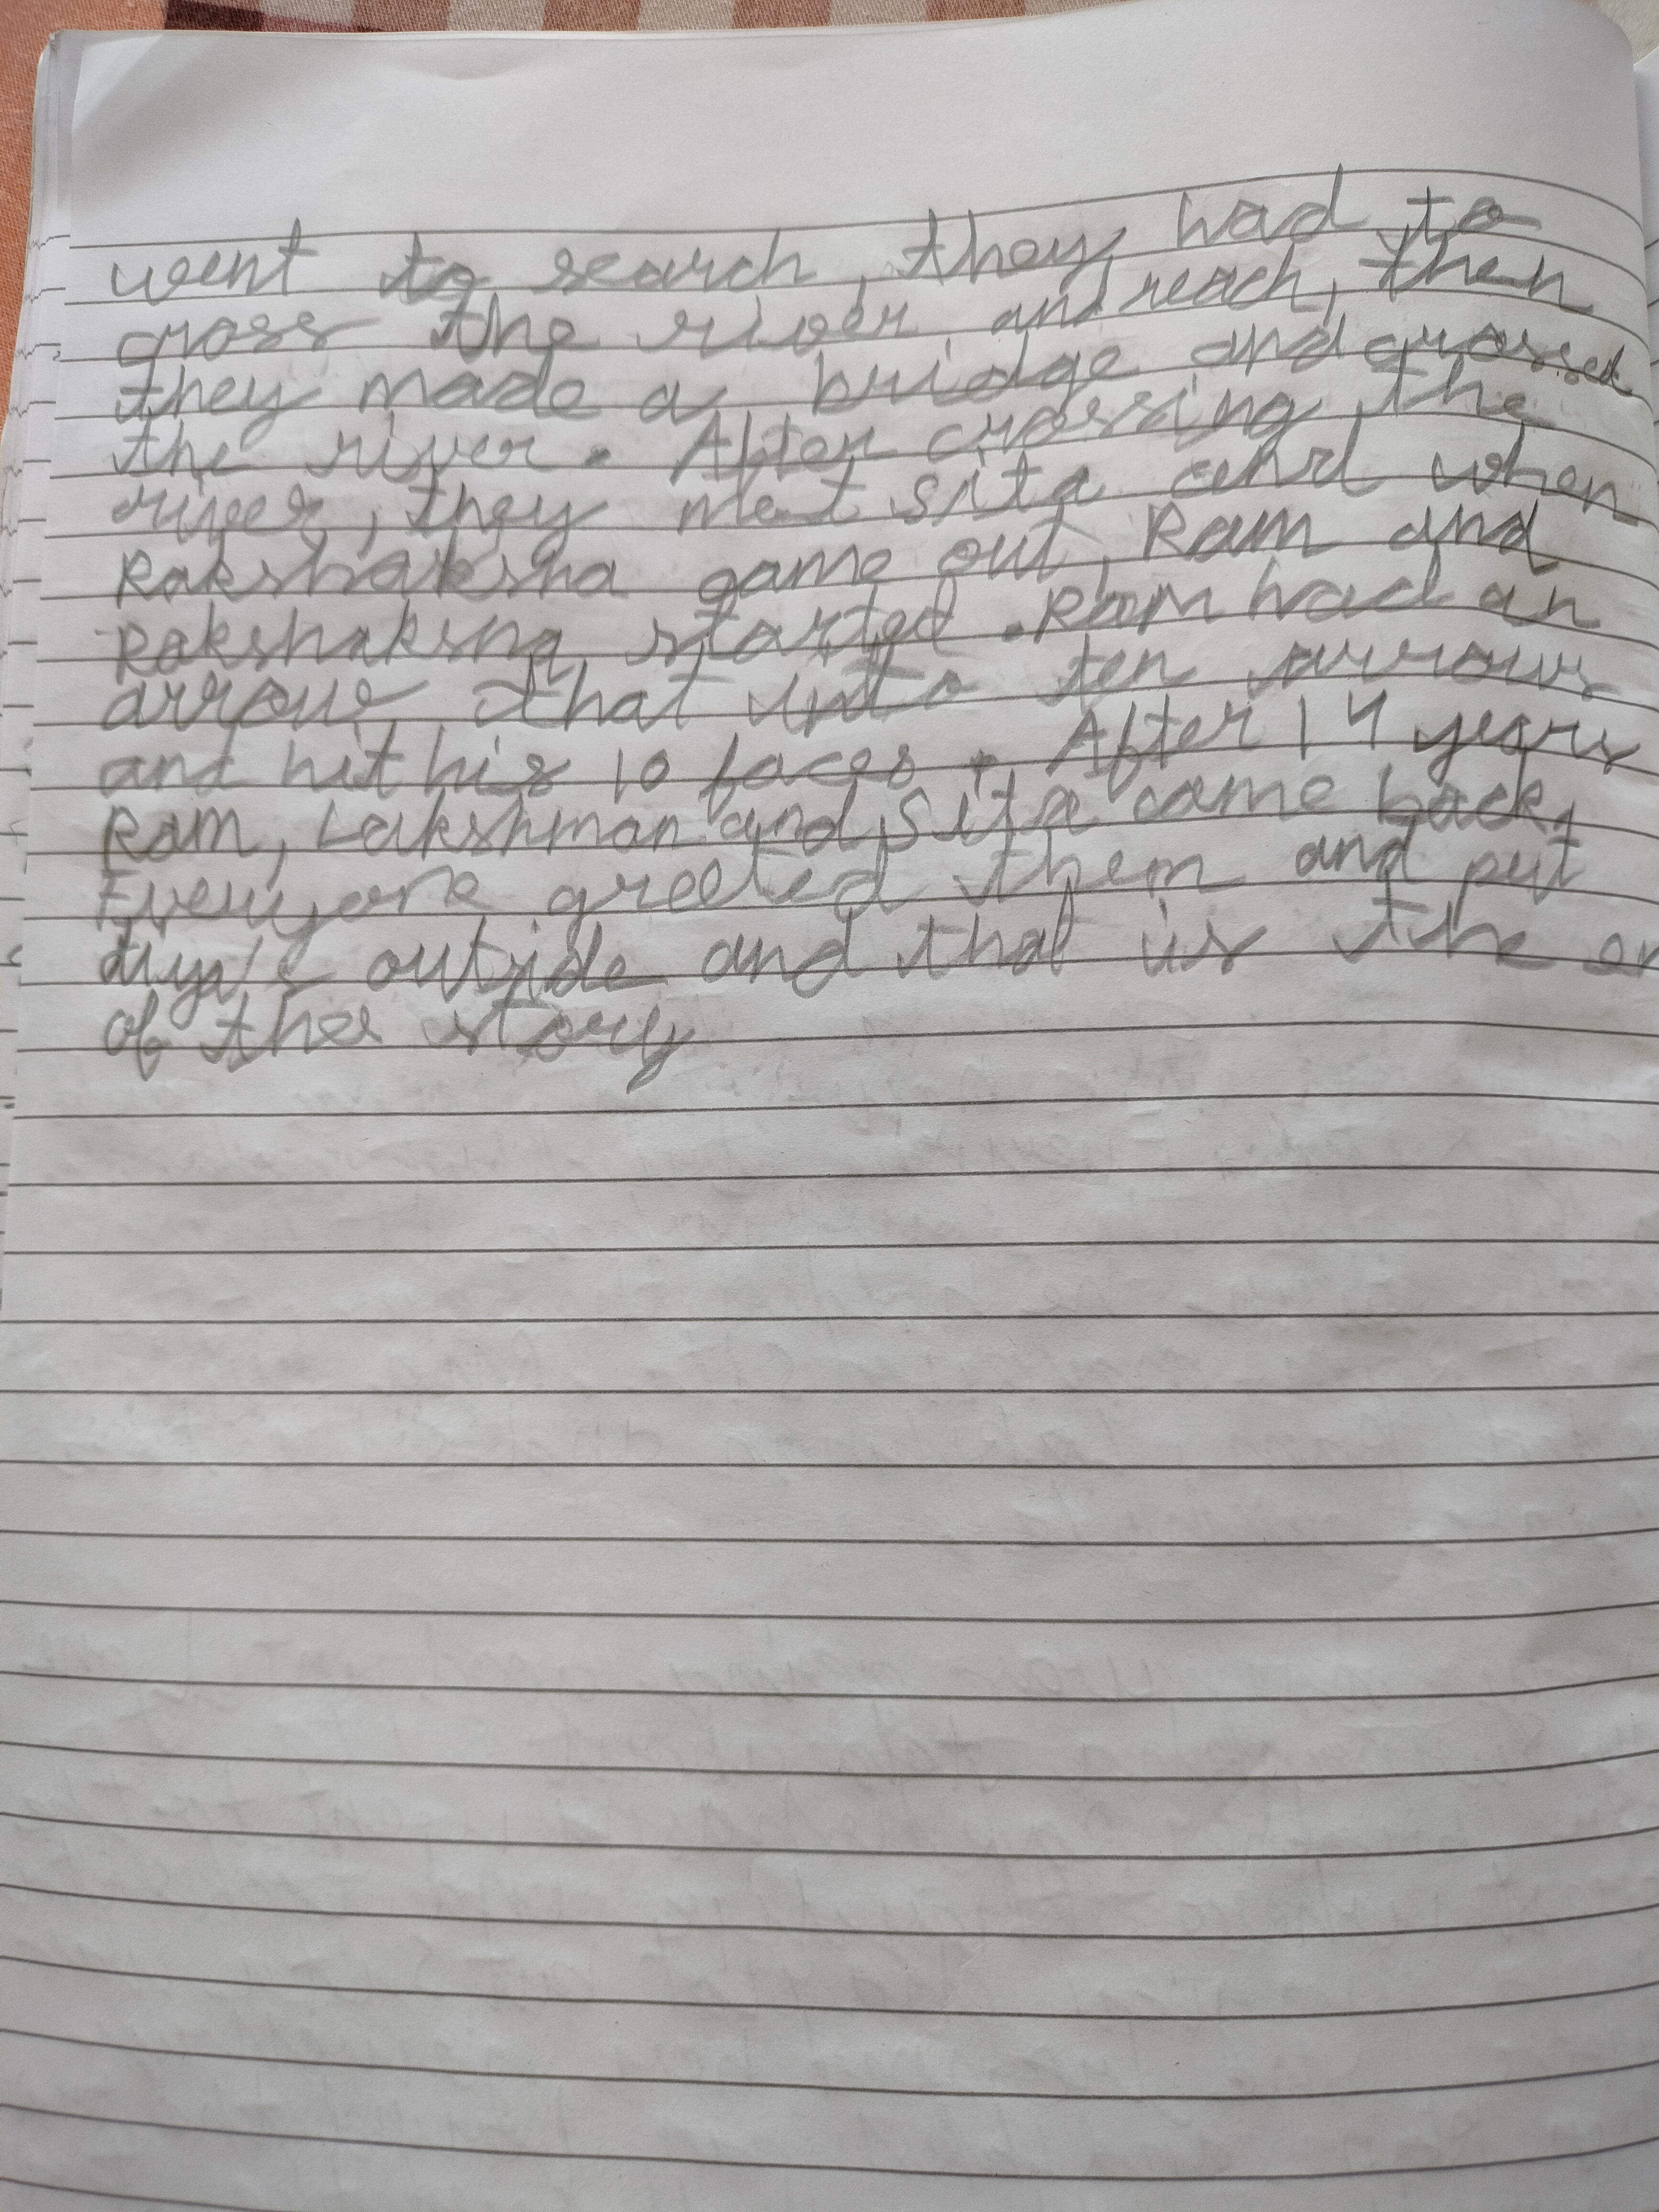 went to search, they had to
cross the river and reach, then
they made a bridge and crossed
the river. After crossing the
river, they met sita and when
Rakshaksha came out, Ram and
Rakshaksha started. Ram had an
arrow that into ten arrows
and hit his 10 faces. After 14 years
Ram, Lakshman and Sita came back.
Everyone greeted them and put
outside and that is the en
of the story